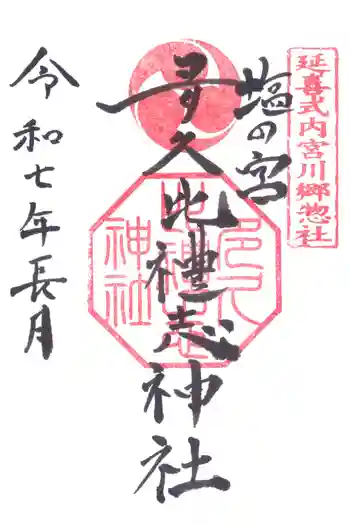 延喜式内宮川郷惣社
塩の宮
多久比禮志神社
令和七年長月